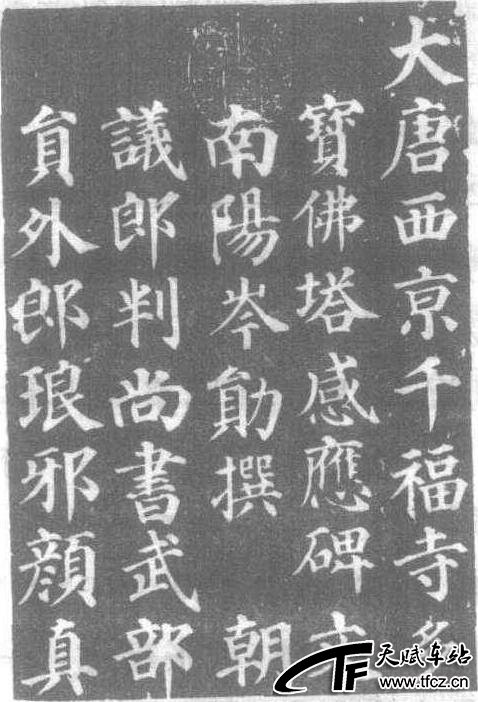 大唐西京千福寺多
寶佛塔感應碑文
南陽岑勛撰 朝
議郎判尚書武部
員外郎琅邪顏真
TF 天赋车站
www.tfcz.cn